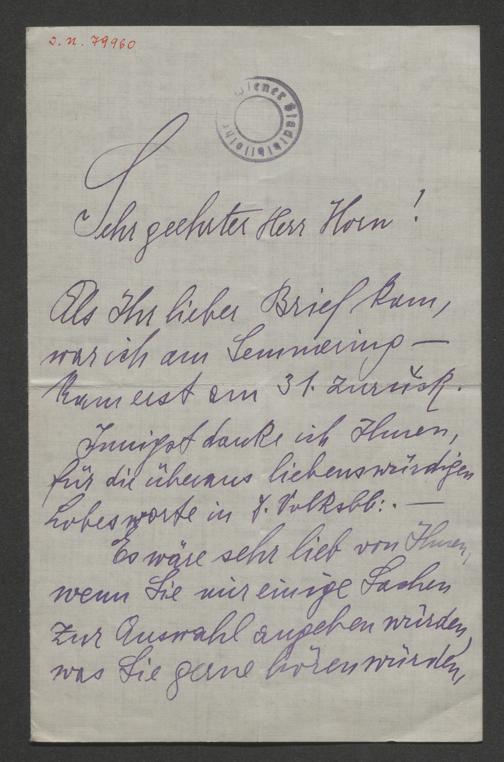 I. N. 79960
Wiener Stadtbibliothek
Sehr geehrter Herr Horn!
Als Ihr lieber Brief kam,
war ich am Semmering —
kam erst am 31. zurück.
Innigst danke ich Ihnen,
für die überaus liebenswürdigen
Lobesworte in d. Volksbl: . —
Es wäre sehr lieb von Ihnen,
wenn Sie mir einige Sachen
zur Auswahl angeben würden,
was Sie gerne hören würden,